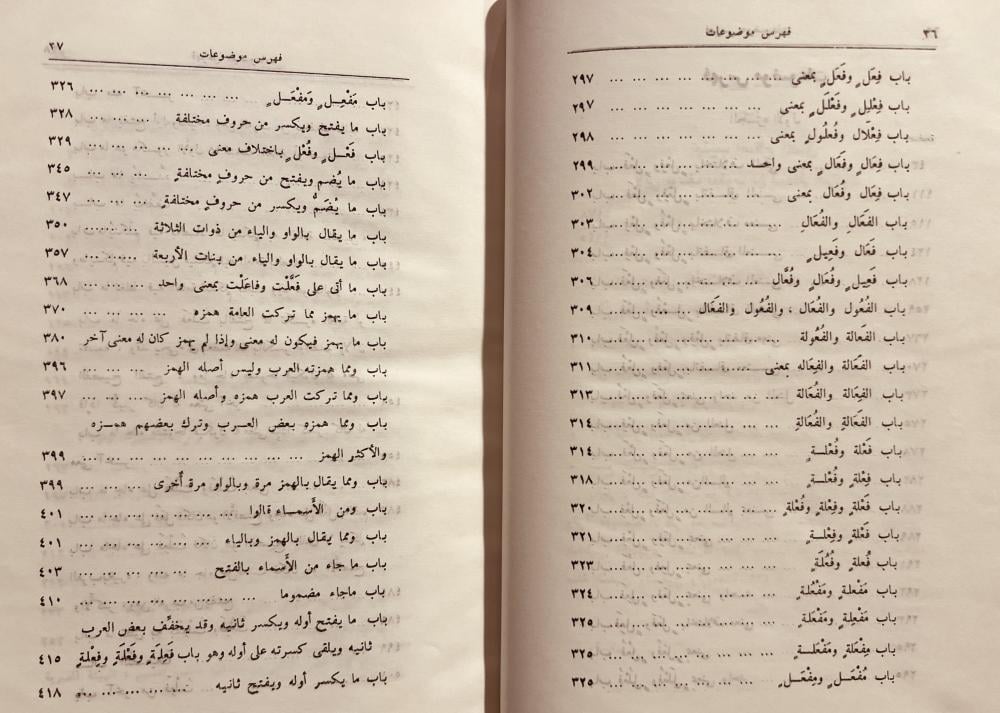 ٣٦ فهرس موضوعات
باب فِعَلٍ وفَعَلٍ بمعنى ... ... ... ... ... ... ... ٢٩٧
باب فِعْلِيلٍ وفَعْلَلٍ بمعنى ... ... ... ... ... ... ٢٩٧
باب فِعْلَال وفُعلُولٍ بمعنى ... ... ... ... ... ... ٢٩٨
باب فِعَالٍ وفَعَالٍ بمعنى واحد ... ... ... ... ... ٢٩٩
باب فِعَال وفُعَال بمعنى ... ... ... ... ... ... ... ٣٠٢
باب الفَعَالِ والفُعَالِ ... ... ... ... ... ... ... ٣٠٣
باب فَعَال وفَعِيلٍ ... ... ... ... ... ... ... ٣٠٤
باب فَعِيلٍ وفُعَالٍ وفُعَّال ... ... ... ... ... ... ٣٠٦
باب الفُعُول والفُعَال ، والفُعُول والفَعَال ... ... ... ... ٣٠٩
باب الفَعالة والفُعُولة ... ... ... ... ... ... ... ٣١٠
باب الفَعَالة والفِعاله بمعنى ... ... ... ... ... ... ٣١١
باب الفِعَالة والفُعَالة ... ... ... ... ... ... ... ٣١٣
باب الفَعَالةِ والفُعَالةِ ... ... ... ... ... ... ... ٣١٤
باب فَعْلة وفُعْلـــةٍ ... ... ... ... ... ... ... ٣١٤
باب فِعْلةٍ وفُعْلـــةٍ ... ... ... ... ... ... ... ٣١٨
باب فَعْلةٍ وفِعْلةٍ وفُعْلةٍ ... ... ... ... ... ... ... ٣٢٠
باب فَعْلةٍ وفِعْلـــةٍ ... ... ... ... ... ... ... ٣٢١
باب فُعلةٍ وفُعُلَةٍ ... ... ... ... ... ... ... ٣٢٣
باب مَفْعَلةٍ ومَفْعُلةٍ ... ... ... ... ... ... ... ٣٢٤
باب مَفْعِلةٍ ومَفْعَلةٍ ... ... ... ... ... ... ... ٣٢٥
باب مِفْعَلة ومَفْعَلـــةٍ ... ... ... ... ... ... ... ٣٢٥
باب مُفْعَـــلٍ ومِفْعَـــلٍ ... ... ... ... ... ... ... ٣٢٥
فهرس موضوعات ٣٧
باب مَفْعِـــلٍ ومَفْعَـــلٍ ... ... ... ... ... ... ... ٣٢٦
باب ما يفتح ويكسر من حروف مختلفة ... ... ... ٣٢٨
باب فَعْـــلٍ وفُعْلٍ باختلاف معنى ... ... ... ... ... ٣٢٩
باب ما يُضم ويفتح من حروفٍ مختلفةٍ ... ... ... ٣٤٥
باب ما يُضَمُّ ويكسر من حروفٍ مختلفةٍ ... ... ... ٣٤٧
باب ما يقال بالواو والياء من ذوات الثلاثة ... ... ... ٣٥٠
باب ما يقال بالواو والياء من بنات الأربعة ... ... ... ٣٥٧
باب ما أتى على فَعَّلْت وفاعَلْت بمعنى واحد ... ... ... ٣٦٨
باب ما يهمز مما تركت العامة همزه ... ... ... ... ٣٧٠
باب ما يهمز فيكون له معنى وإذا لم يهمز كان له معنى آخر ٣٨٠
باب ومما همزته العرب وليس أصله الهمز ... ... ... ٣٩٦
باب ومما تركت العرب همزه وأصله الهمز ... ... ... ٣٩٧
باب ومما همزه بعض العـــرب وترك بعضهم همـــزه
والأكثر الهمز ... ... ... ... ... ... ... ... ٣٩٩
باب ومما يقال بالهمز مرة وبالواو مرة أخرى ... ... ... ٣٩٩
باب ومن الأَسمـــاء قالوا ... ... ... ... ... ... ٤٠١
باب ومما يقال بالهمز وبالياء ... ... ... ... ... ... ٤٠١
باب ما جاء من الأَسماء بالفتح ... ... ... ... ... ٤٠٣
باب ماجاء مضموما ... ... ... ... ... ... ... ٤١٠
باب ما يفتح أوله ويكسر ثانيه وقد يخفِّف بعض العرب
ثانيه ويلقى كسرته على أوله وهو باب فَعِلَةٍ وفَعْلَةٍ وفِعْلةٍ ٤١٥
باب ما يكسر أوله ويفتح ثانيه ... ... ... ... ... ٤١٨